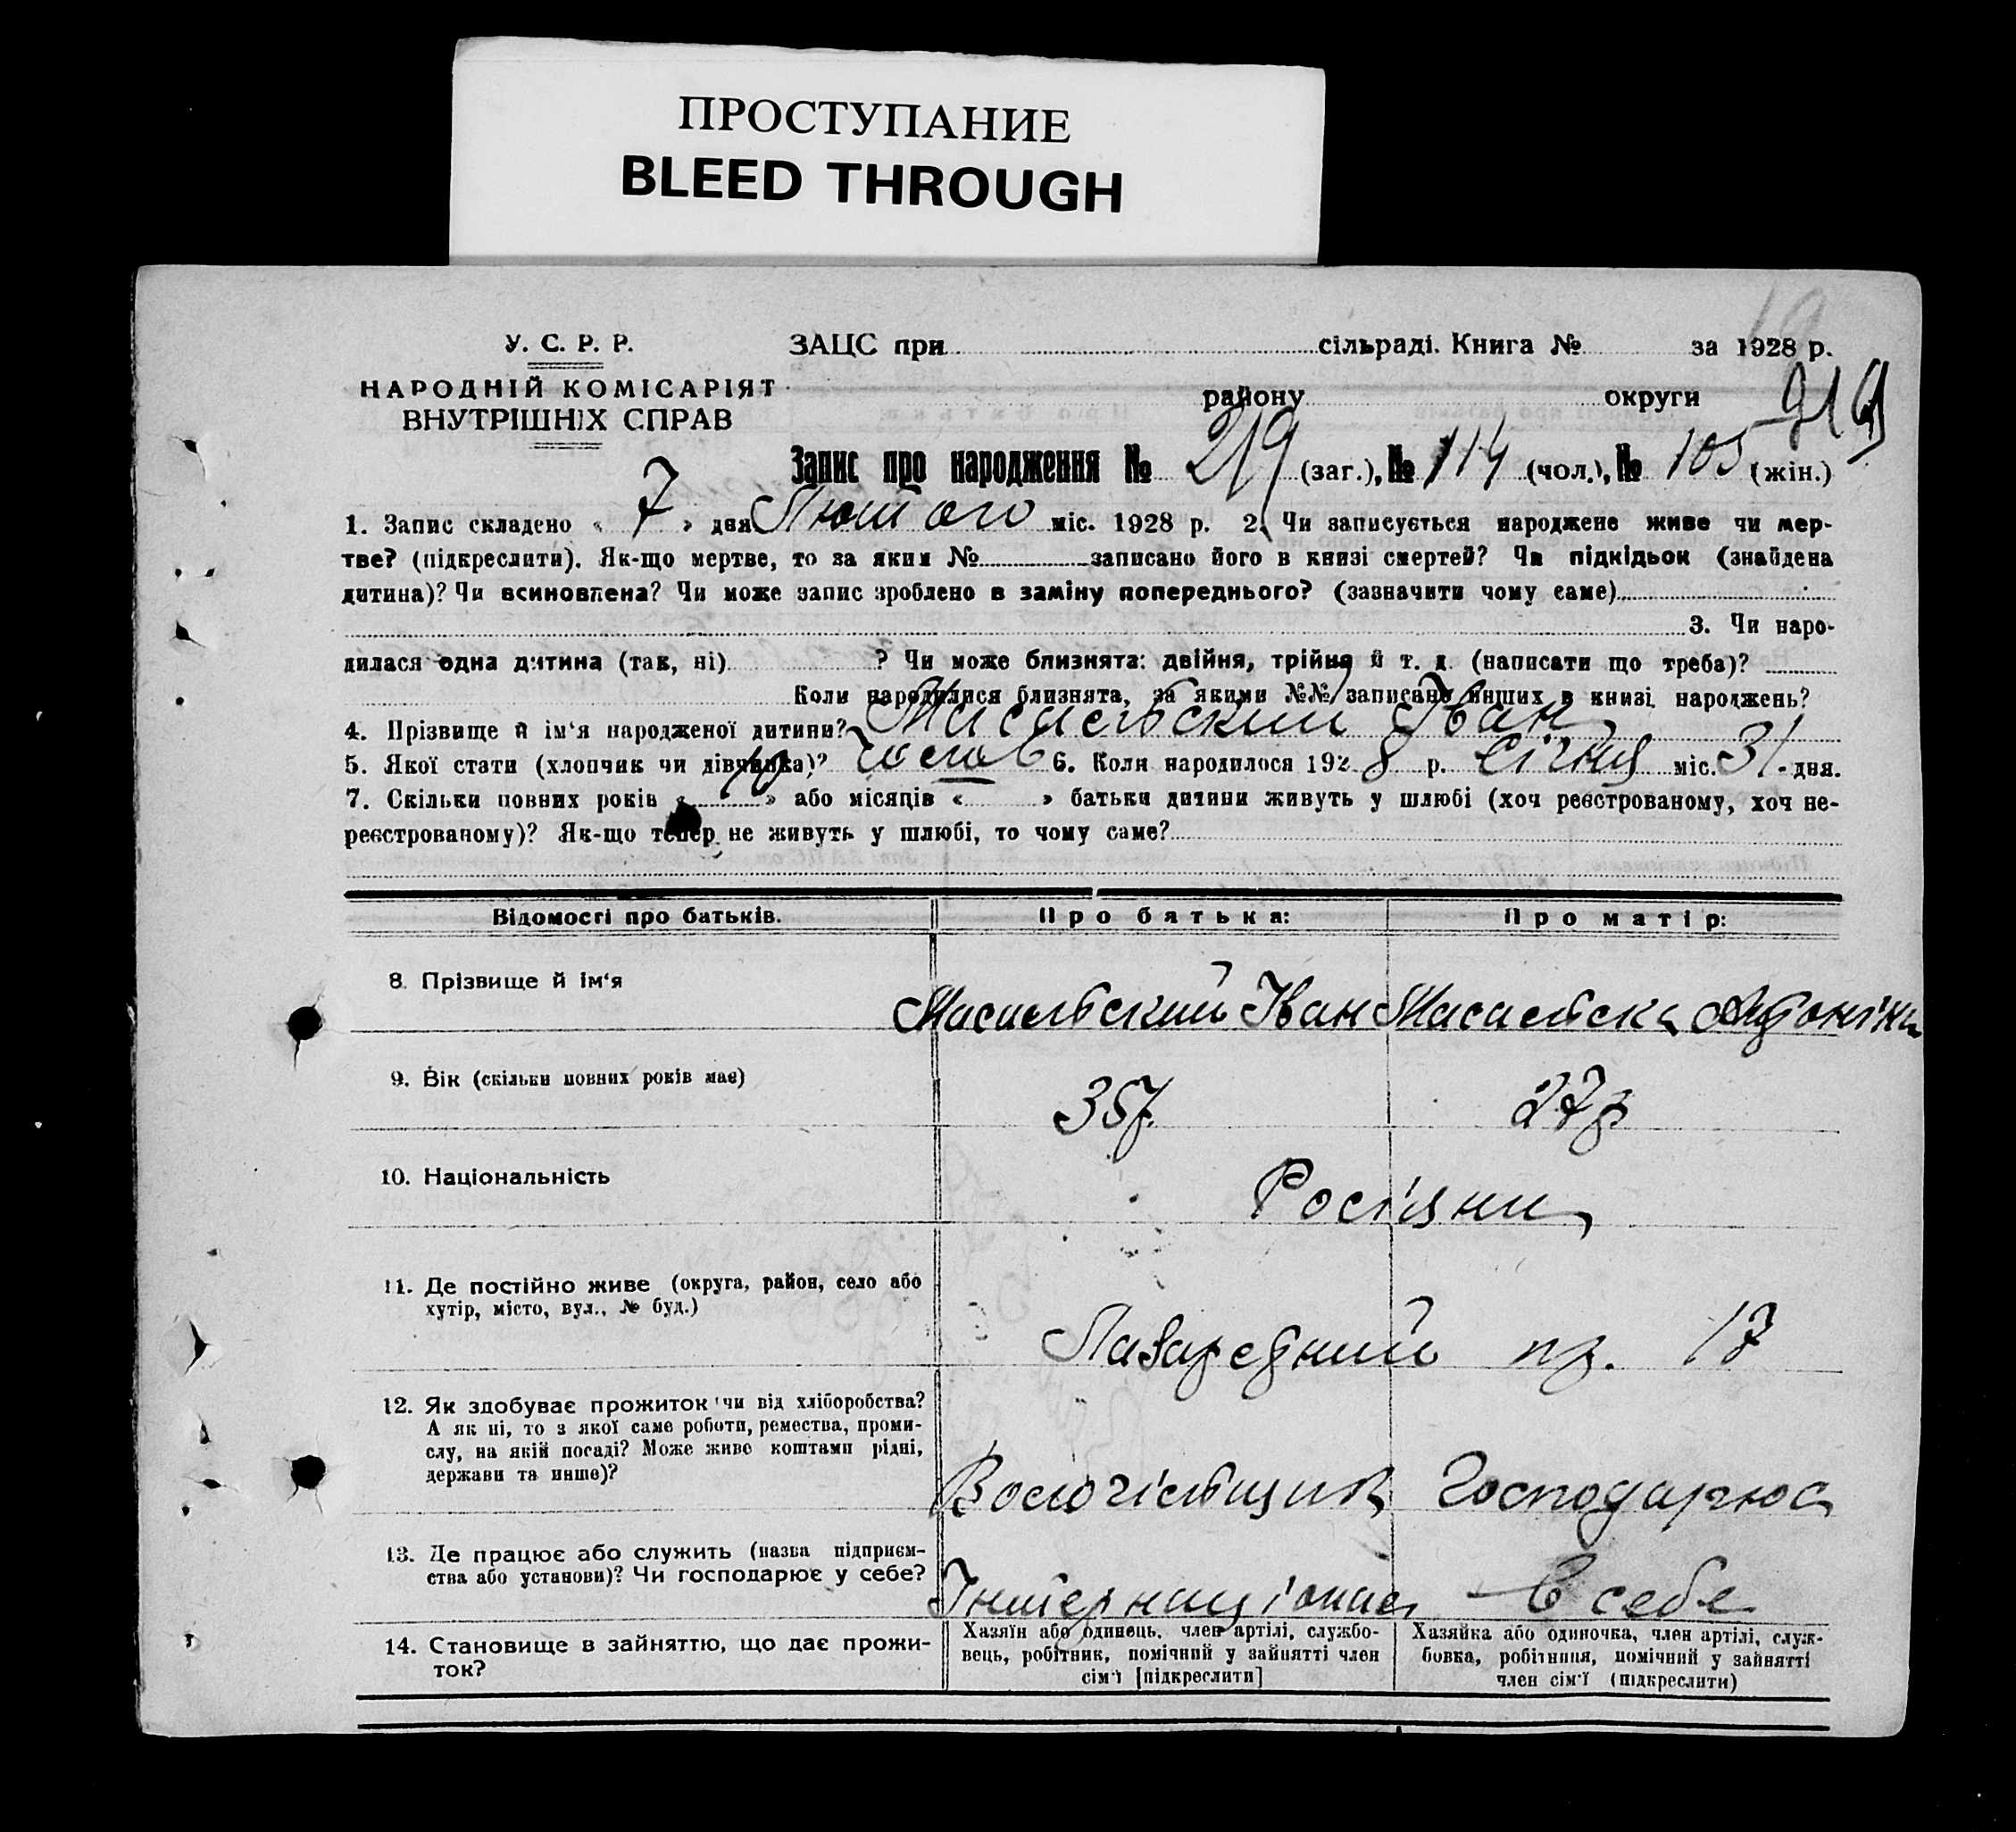 ПРОСТУПАНИЕ
BLEED THROUGH
19
У. С. Р. Р.
НАРОДНІЙ КОМІСАРІЯТ
ВНУТРІШНІХ СПРАВ
ЗАЦС при сільраді. Книга № за 1928 р.
району округи
219
Запис про народження № 219 (заг.), № 114 (чол.), № 105 (жін.)
1. Запис складено « 7 » дня Лютого міс. 1928 р. 2. Чи записується народжене живе чи мер-
тве? (підкреслити). Як-що мертве, то за яким № записано його в книзі смертей? Чи підкідьок (знайдена
дитина)? Чи всиновлена? Чи може запис зроблено в заміну попереднього? (зазначити чому саме)
3. Чи наро-
дилася одна дитина (так, ні) ? Чи може близнята: двійня, трійня й т. д. (написати що треба)?
Коли народилися близнята, за якими №№ записано инших в книзі народжень?
4. Прізвище й ім‘я народженої дитини? Іван
5. Якої стати (хлопчик чи дівчинка)? Чолов 6. Коли народилося 1928 р. Січня міс. 31 дня.
7. Скільки повних років « 10 » або місяців « » батьки дитини живуть у шлюбі (хоч реєстрованому, хоч не-
реєстрованому)? Як-що тепер не живуть у шлюбі, то чому саме?
Відомості про батьків.
Про батька:
Про матір:
8. Прізвище й ім‘я
Іван
9. Вік (скільки повних років має)
35р.
27р
10. Національність
Росіяни
11. Де постійно живе (округа, район, село або
хутір, місто, вул., № буд.)
пр. 17
12. Як здобуває прожиток чи від хліборобства?
А як ні, то з якої саме роботи, ремества, проми-
слу, на якій посаді? Може живе коштами рідні,
держави та инше)?
Господарює
13. Де працює або служить (назва підприєм-
ства або установи)? Чи господарює у себе?
Інтернаціонал
В себе
14. Становище в зайняттю, що дає прожи-
ток?
Хазяїн або одинець, член артілі, службо-
вець, робітник, помічний у зайнятті член
сім‘ї [підкреслити]
Хазяйка або одиночка, член артілі, служ-
бовка, робітниця, помічний у зайнятті
член сім‘ї (підкреслити)